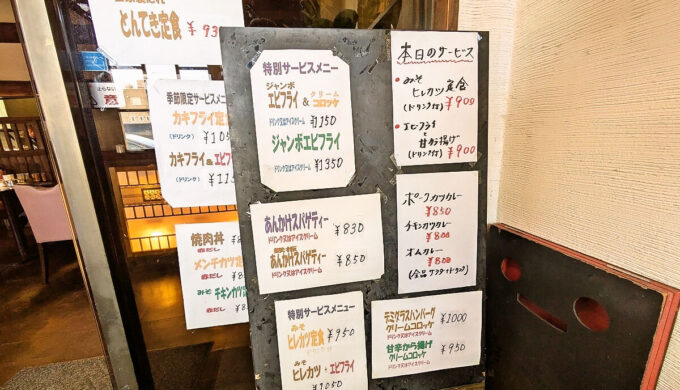 とんてき定食 ¥93
季節限定サービスメニ
カキフライ定
(ドリンク) ¥105
カキフライ&エビフ
(ドリンク) ¥115
焼肉丼
赤だし
メンチカツ定
赤だし
みそ チキンカツ定
赤だし
特別サービスメニュー
ジャンボ クリーム
エビフライ & コロッケ
ドリンク又はアイスクリーム ¥1150
ジャンボエビフライ
ドリンク又はアイスクリーム ¥1350
あんかけスパゲティー ¥830
ドリンク又はアイスクリーム
あんかけスパゲティー ¥850
ドリンク又はアイスクリーム
特別サービスメニュー
みそ
ヒレカツ定食 ¥950
みそ
ヒレカツ・エビフライ
¥1050
本日のサービス
・みそ
ヒレカツ定食
(ドリンク付) ¥900
・エビフライ
と
甘から揚げ
(ドリンク付) ¥900
ポークカツカレー
¥850
チキンカツカレー
¥800
オムカレー
¥800
(全品サラダ・ドリンク)
デミグラスハンバーグ
クリームコロッケ ¥1000
ドリンク又はアイスクリーム
甘辛から揚げ
クリームコロッケ ¥950
ドリンク又はアイスクリーム